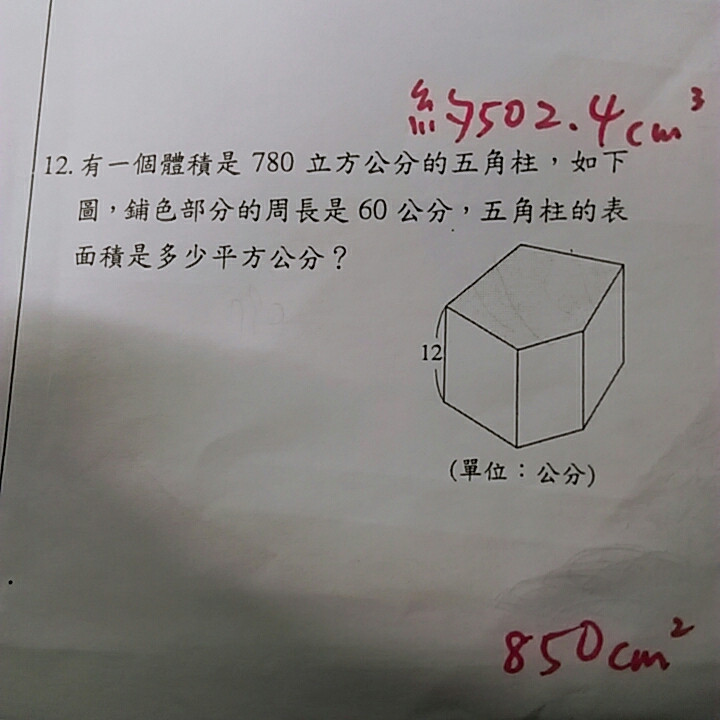 約502.4cm³
12. 有一個體積是 780 立方公分的五角柱，如下
圖，鋪色部分的周長是 60 公分，五角柱的表
面積是多少平方公分？
12
(單位：公分)
850cm²